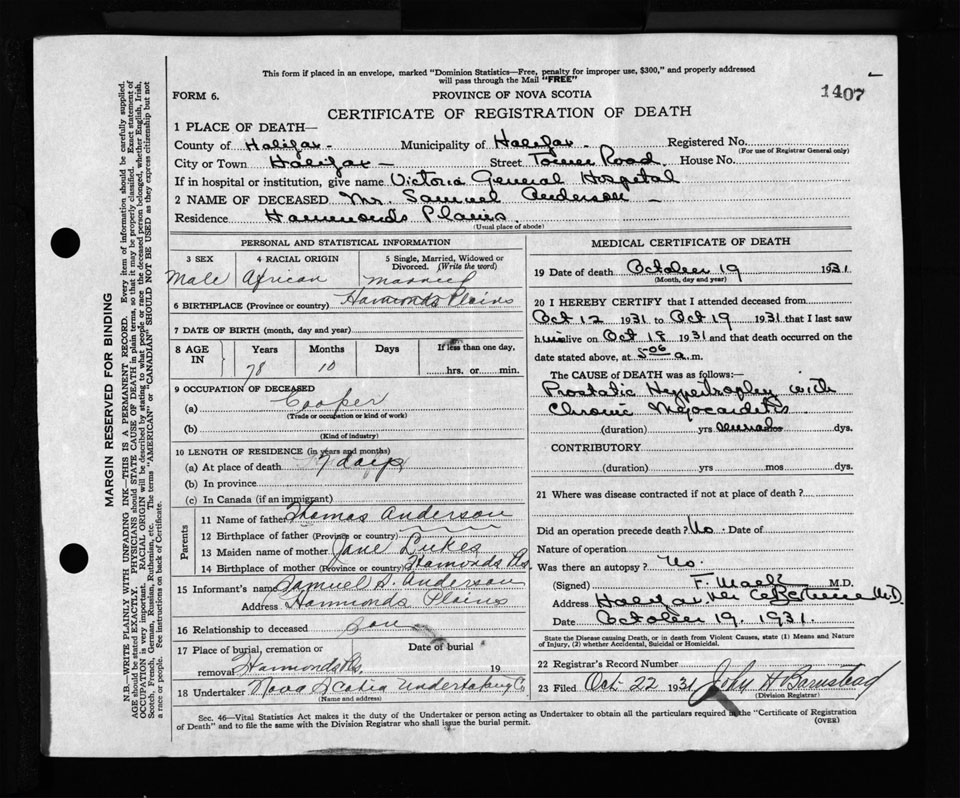 This form if placed in an envelope, marked "Dominion Statistics—Free, penalty for improper use, $300," and properly addressed
will pass through the Mail "FREE"
1407
FORM 6.
PROVINCE OF NOVA SCOTIA
CERTIFICATE OF REGISTRATION OF DEATH
1 PLACE OF DEATH—
County of Halifax Municipality of Halifax Registered No.
(For use of Registrar General only)
City or Town Halifax Street Tower Road House No.
If in hospital or institution, give name Victoria General Hospital
2 NAME OF DECEASED Mr. Samuel Anderson
Residence Hammonds Plains
(Usual place of abode)
PERSONAL AND STATISTICAL INFORMATION
3 SEX Male
4 RACIAL ORIGIN African
5 Single, Married, Widowed or Divorced. (Write the word) Married
6 BIRTHPLACE (Province or country) Hamonds Plains
7 DATE OF BIRTH (month, day and year)
8 AGE IN Years 78 Months 10 Days If less than one day, hrs. or min.
9 OCCUPATION OF DECEASED
(a) Cooper
(Trade or occupation or kind of work)
(b)
(Kind of industry)
10 LENGTH OF RESIDENCE (in years and months)
(a) At place of death 7 days
(b) In province
(c) In Canada (if an immigrant)
Parents
11 Name of father Thomas Anderson
12 Birthplace of father (Province or country)
13 Maiden name of mother Jane Lukes
14 Birthplace of mother (Province or country) Hamonds Pls
15 Informant's name Samuel S. Anderson
Address Hamonds Plains
16 Relationship to deceased Son
17 Place of burial, cremation or removal Hamonds Pls, Date of burial 19
18 Undertaker Nova Scotia Undertaking Co
(Name and address)
MEDICAL CERTIFICATE OF DEATH
19 Date of death October 19 1931
(Month, day and year)
20 I HEREBY CERTIFY that I attended deceased from
Oct 12 1931 to Oct 19 1931 that I last saw
him alive on Oct 18 1931 and that death occurred on
date stated above, at 5.06 a.m.
The CAUSE OF DEATH was as follows:
Prostatic Hypertrophy with
Chronic Myocarditis
(duration) yrs several mos dys.
CONTRIBUTORY
(duration) yrs mos dys.
21 Where was disease contracted if not at place of death?
Did an operation precede death? No Date of
Nature of operation
Was there an autopsy? No.
(Signed) F. Mack M.D.
Address Halifax M.D.
Date October 19. 1931.
State the Disease causing Death, or in death from Violent Causes, state (1) Means and Nature
of Injury, (2) whether Accidental, Suicidal or Homicidal.
22 Registrar's Record Number
23 Filed Oct 22 1931 John H Barnstead
(Division Registrar)
Sec. 46—Vital Statistics Act makes it the duty of the Undertaker or person acting as Undertaker to obtain all the particulars required in the "Certificate of Registration
of Death" and to file the same with the Division Registrar who shall issue the burial permit.
(OVER)
MARGIN RESERVED FOR BINDING
N.B.—WRITE PLAINLY WITH UNFADING INK—THIS IS A PERMANENT RECORD. Every item of information should be carefully supplied.
AGE should be stated EXACTLY. PHYSICIANS should STATE CAUSE OF DEATH in plain terms, so that it may be properly classified. Exact statement of
OCCUPATION is very important. RACIAL ORIGIN will be described by stating to what people or race the deceased person belonged, whether English, Irish,
Scotch, French, German, Russian, Ruthenian, etc. The terms "AMERICAN" or "CANADIAN" SHOULD NOT BE USED as they express citizenship but not
a race or people. See instructions on back of Certificate.